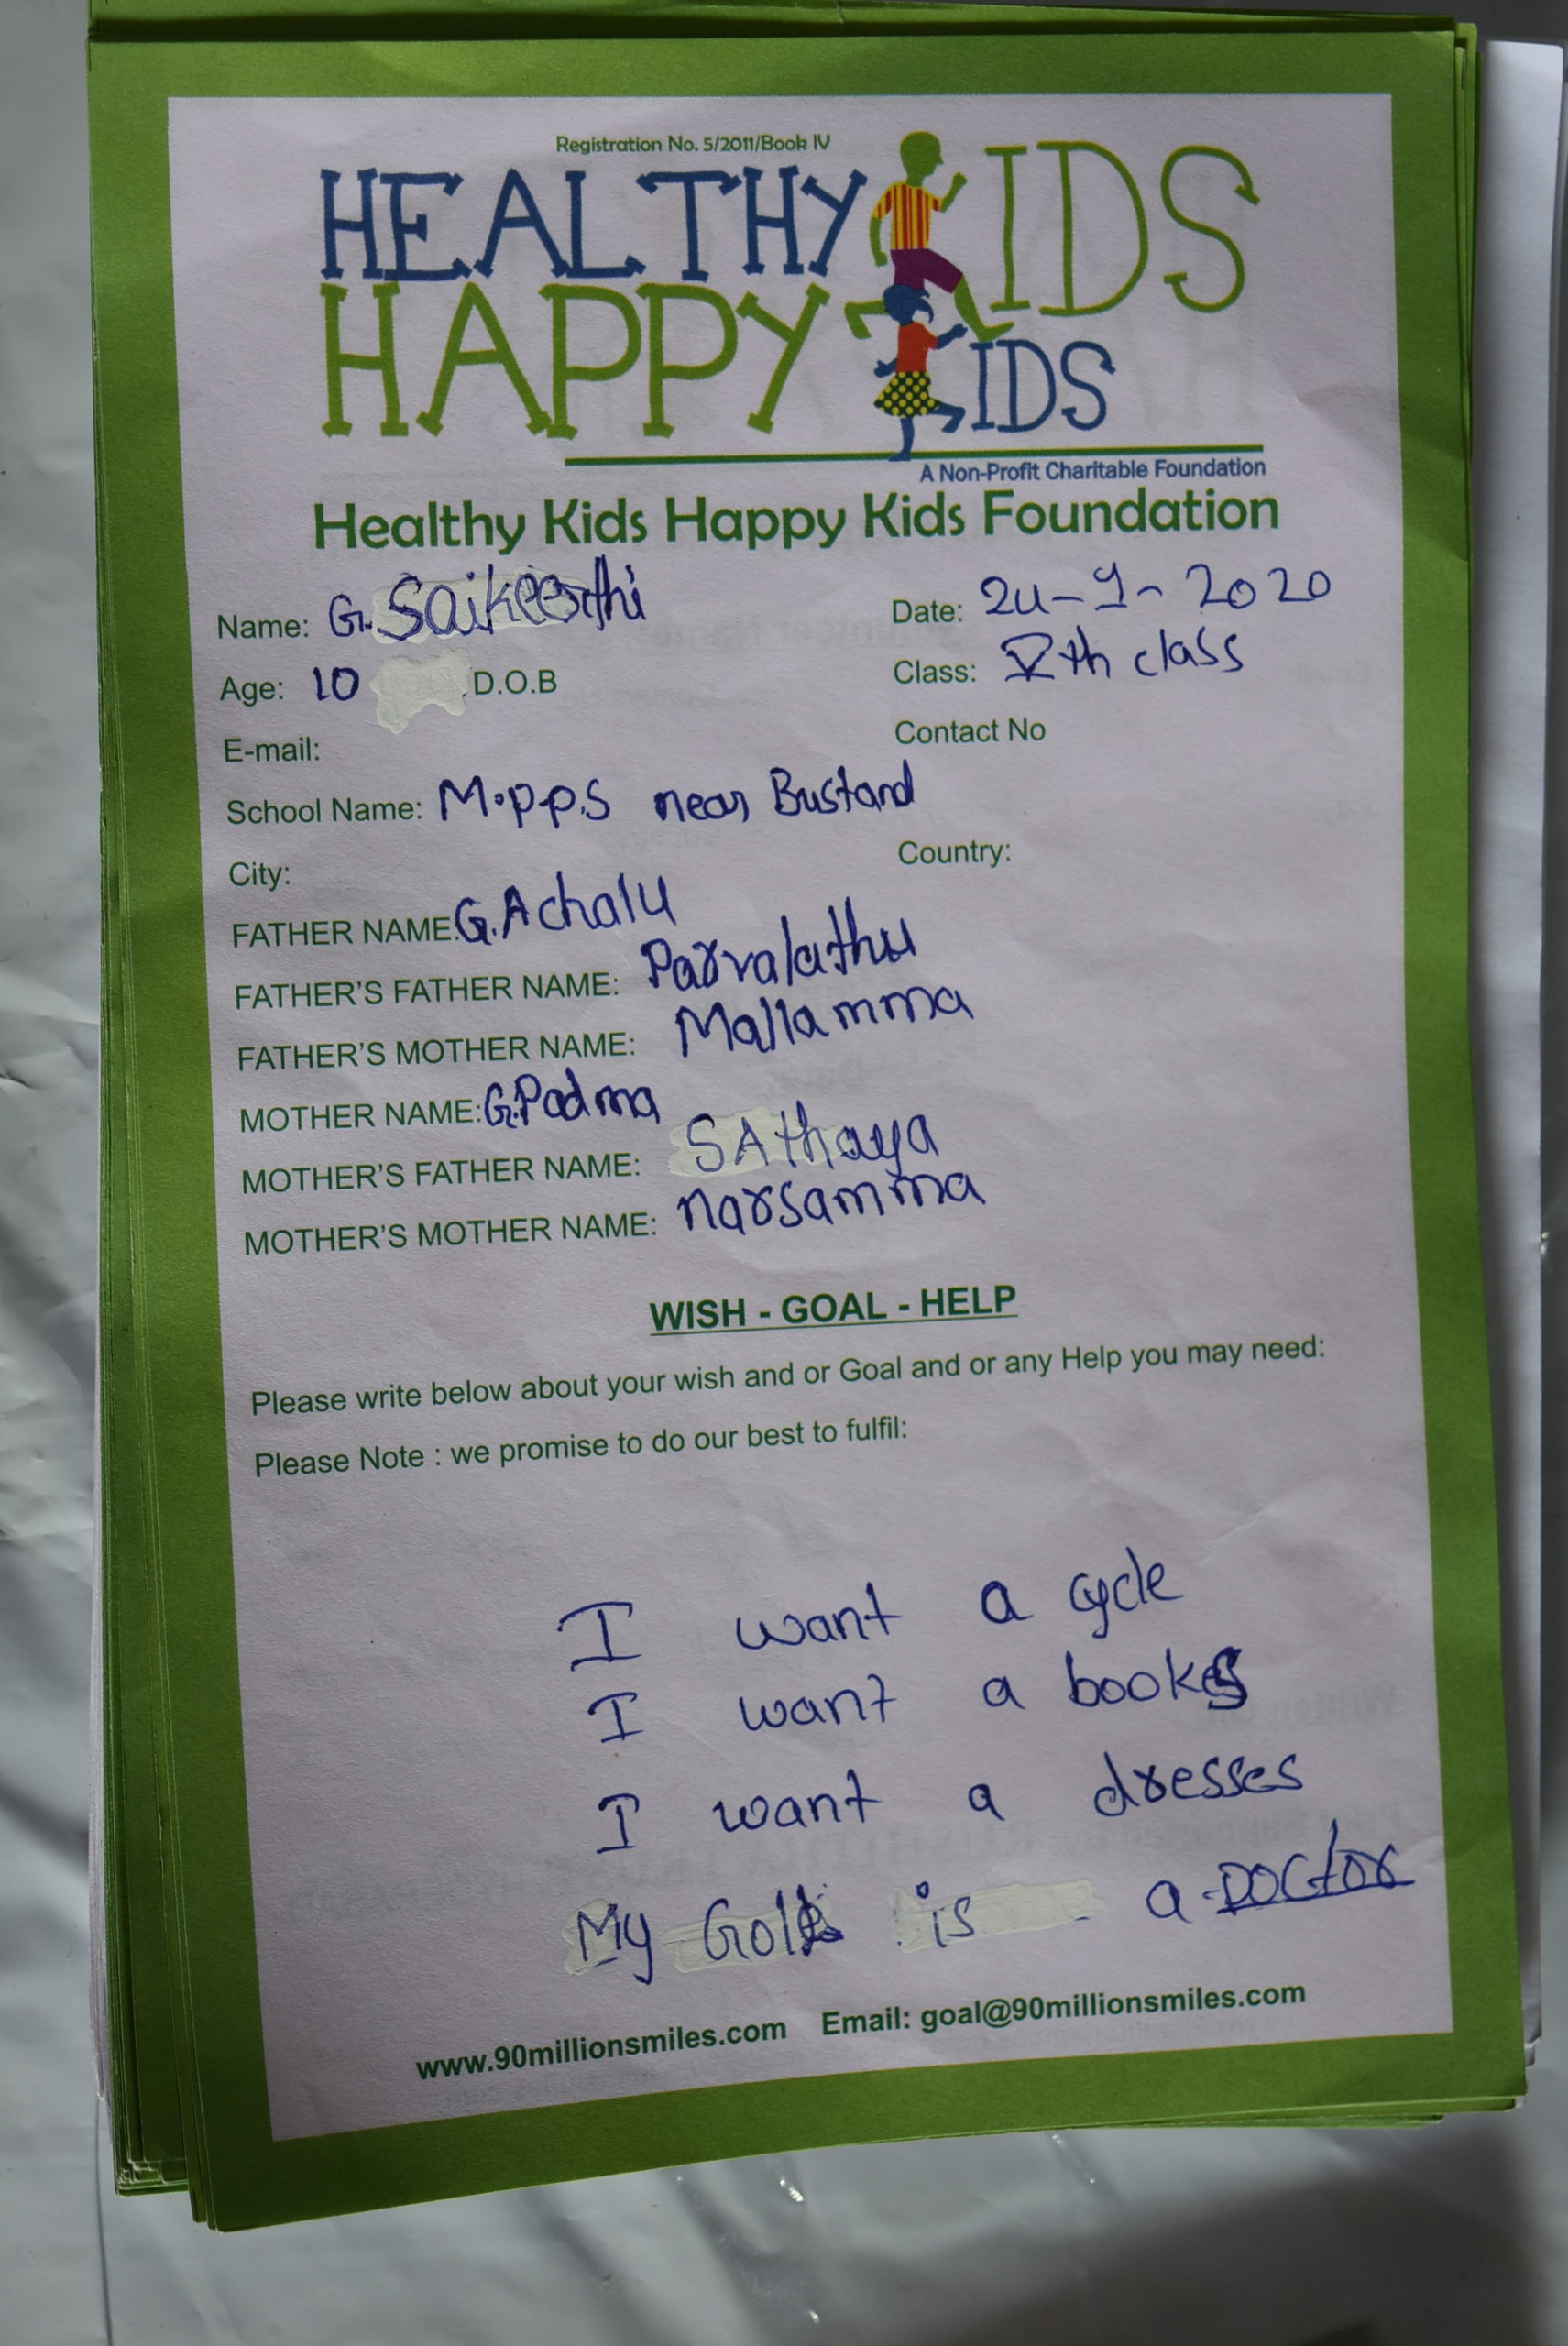 Registration No. 5/2011/Book IV
HEALTHY KIDS
HAPPY KIDS
A Non-Profit Charitable Foundation
Healthy Kids Happy Kids Foundation
Name: G. Saikeerthi Date: 24-9-2020
Age: 10 D.O.B Class: Vth class
E-mail: Contact No
School Name: M.p.p.s near Bustand
City: Country:
FATHER NAME: G. Achalu
FATHER'S FATHER NAME: Parvalathu
FATHER'S MOTHER NAME: Mallamma
MOTHER NAME: G. Padma
MOTHER'S FATHER NAME: SAthaya
MOTHER'S MOTHER NAME: narsamma
WISH - GOAL - HELP
Please write below about your wish and or Goal and or any Help you may need:
Please Note : we promise to do our best to fulfil:
I want a cycle
I want a books
I want a dresses
My is a DOCtor
www.90millionsmiles.com Email: goal@90millionsmiles.com